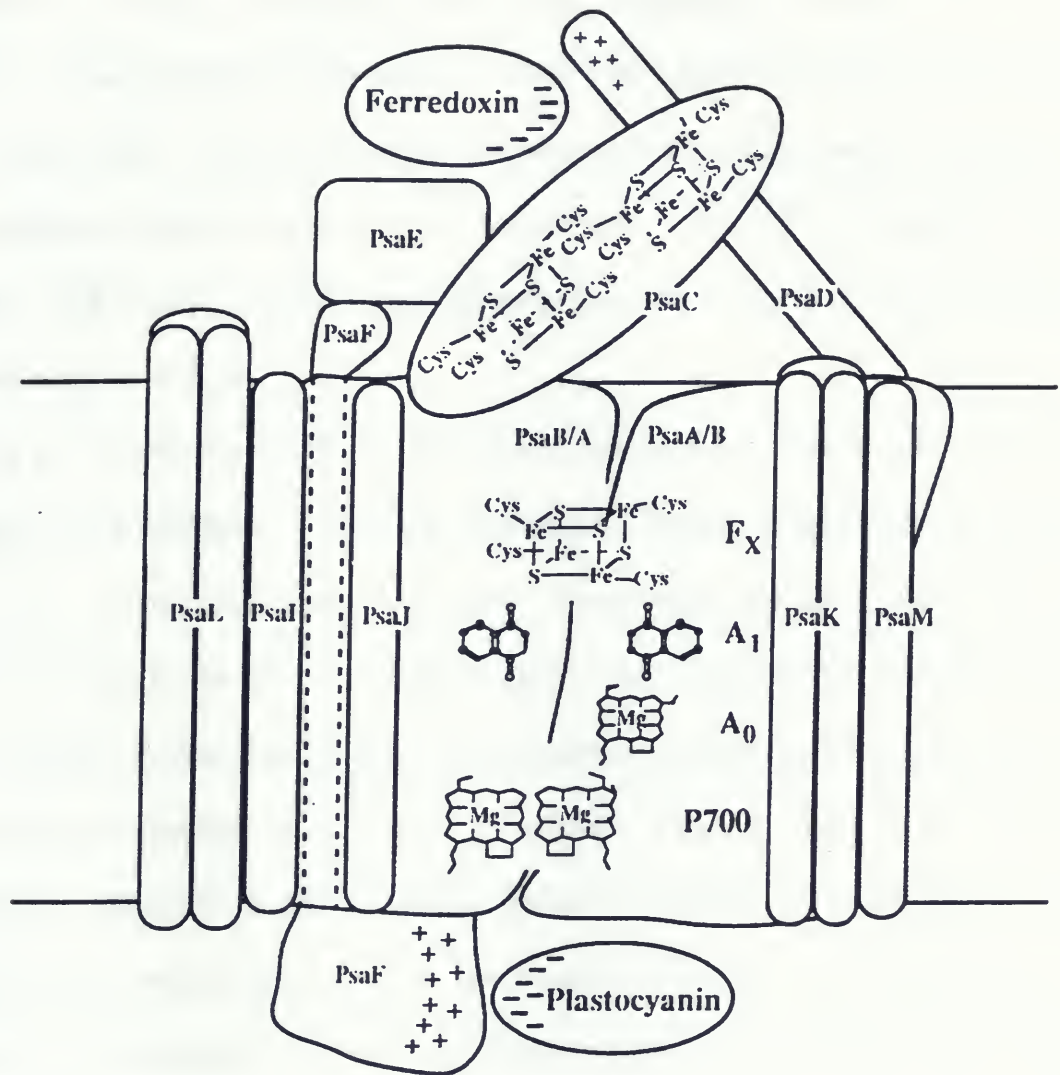 + +
+ + +
+
Ferredoxin
Cys
Fe
S S Cys
S
Cys Fe Fe Fe
Cys Cys S
Fe
PsaE
S S S Cys
Fe Fe Fe
Cys
Cys S
PsaC
PsaD
PsaF
PsaB/A PsaA/B
Cys S Fe Cys
Fe S
Cys Fe S
S Fe Cys
FX
PsaL PsaI PsaJ
A1
PsaK PsaM
Mg
A0
Mg Mg
P700
PsaF
+ +
+ +
+ +
+ +
+ +
+ +
Plastocyanin